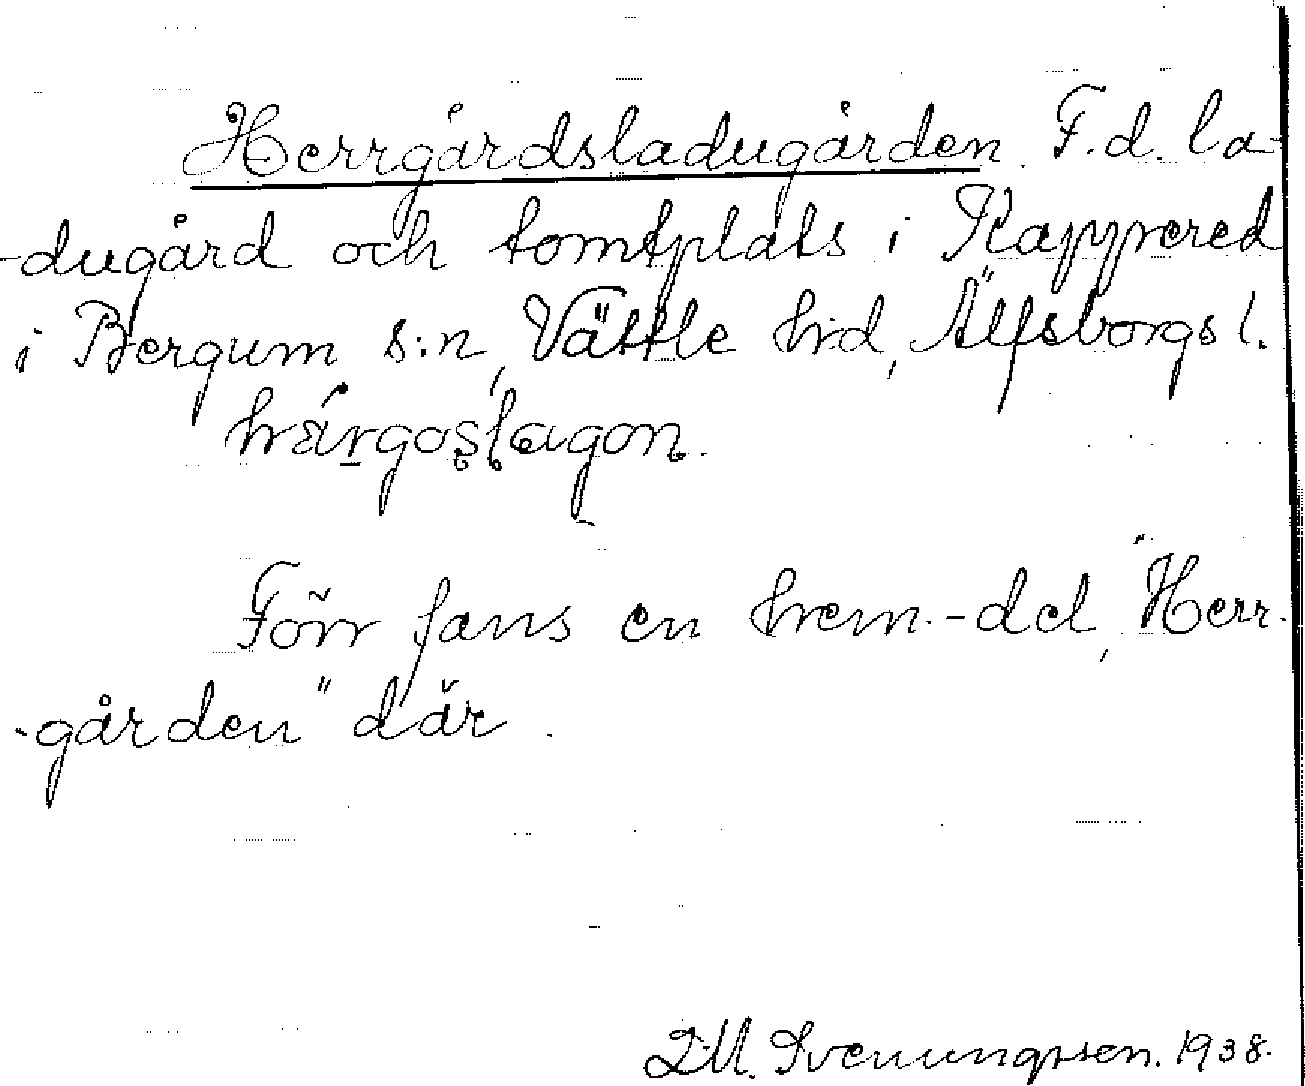 Herrgårdsladugården. F.d. la-
-dugård och tomtplats i Rappered
i Bergum s:n, Vättle hrd, Älfsborgs l.
Förr fans en hem.-del, "Herr-
-gården" där.
D.M. Svenungssen. 1938.